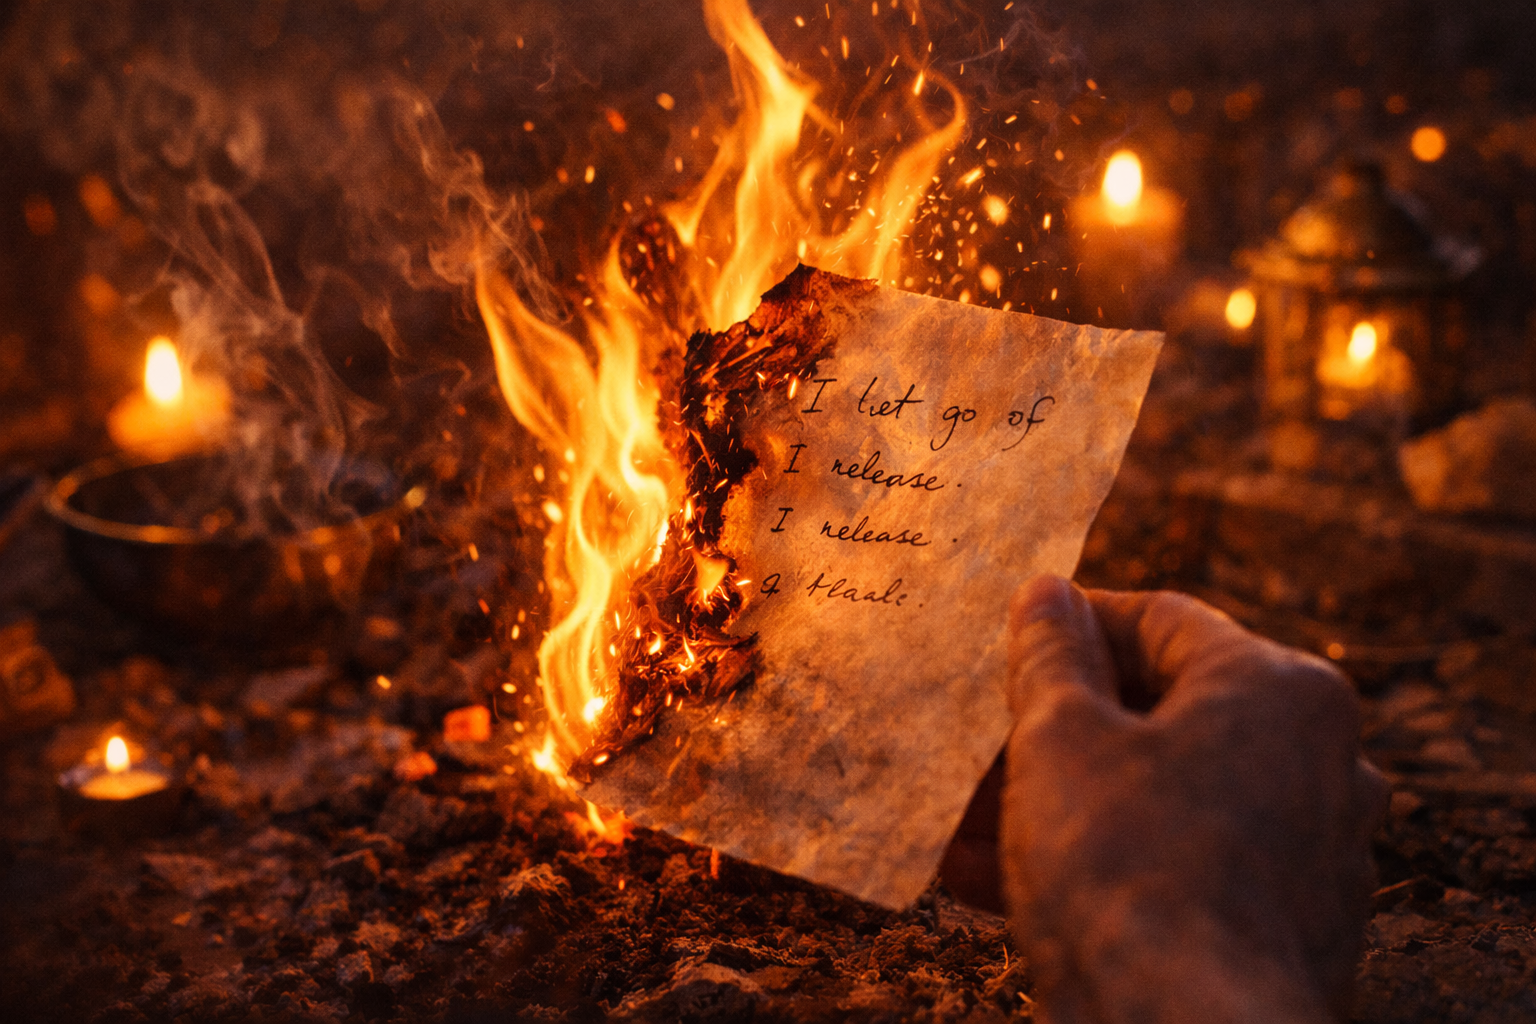 I let go of
I release.
I release.